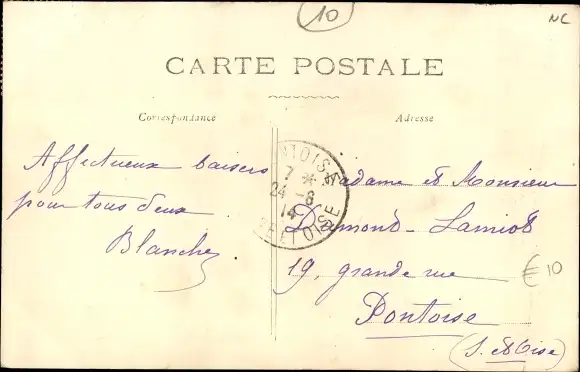 10
NC
CARTE POSTALE
Correspondance
Adresse
Affectueux baisers
pour tous deux
Blanche
PONTOISE
7 *
24 - 6
14
SEINE ET OISE
Madame et Monsieur
Dumond - Lamiot
19, grande rue
Pontoise
(S. et Oise)
€ 10